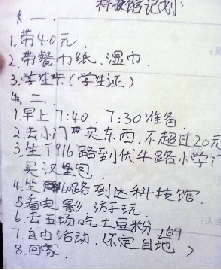 科技路记划:
其一.
1.带40元
2.带餐巾纸、湿巾.
3.学生卡(学生证)
其二.
1.早上7:40. 7:30准备
2.去小门 买东西,不超过20元
3.坐T916路到优牛路小学
买汉堡包
4.坐 路到达科技馆.
5.看电影 孩子玩
6.去五场吃土豆粉
7.自由活动,(不定自地)
8.回家.